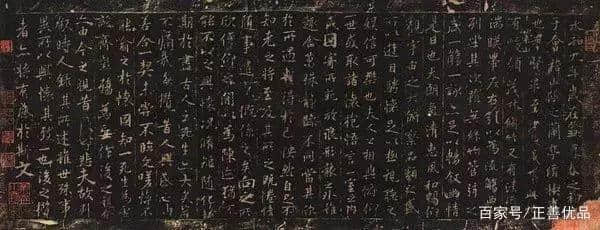 永和九年歲在癸丑暮春之初會
于會稽山陰之蘭亭脩禊事
也羣賢畢至少長咸集此地
有峻領茂林脩竹又有清流激
湍暎帶左右引以為流觴曲水
列坐其次雖無絲竹管弦之
盛一觴一詠亦足以暢敘幽情
是日也天朗氣清惠風和暢仰
觀宇宙之大俯察品類之盛
所以遊目騁懷足以極視聽之
娛信可樂也夫人之相與俯仰
一世或取諸懷抱悟言一室之內
或因寄所託放浪形骸之外雖
趣舍萬殊靜躁不同當其欣
於所遇暫得於己怏然自足不
知老之將至及其所之既惓情
隨事遷感慨係之矣向之所
欣俛仰之閒以為陳迹猶不
能不以之興懷況脩短隨化終
期於盡古人云死生亦大矣豈
不痛哉每攬昔人興感之由
若合一契未嘗不臨文嗟悼不
能喻之於懷固知一死生為虛
誕齊彭殤為妄作後之視今
亦由今之視昔悲夫故列
敘時人錄其所述雖世殊事
異所以興懷其致一也後之攬
者亦將有感於斯文
百家号/正善优品